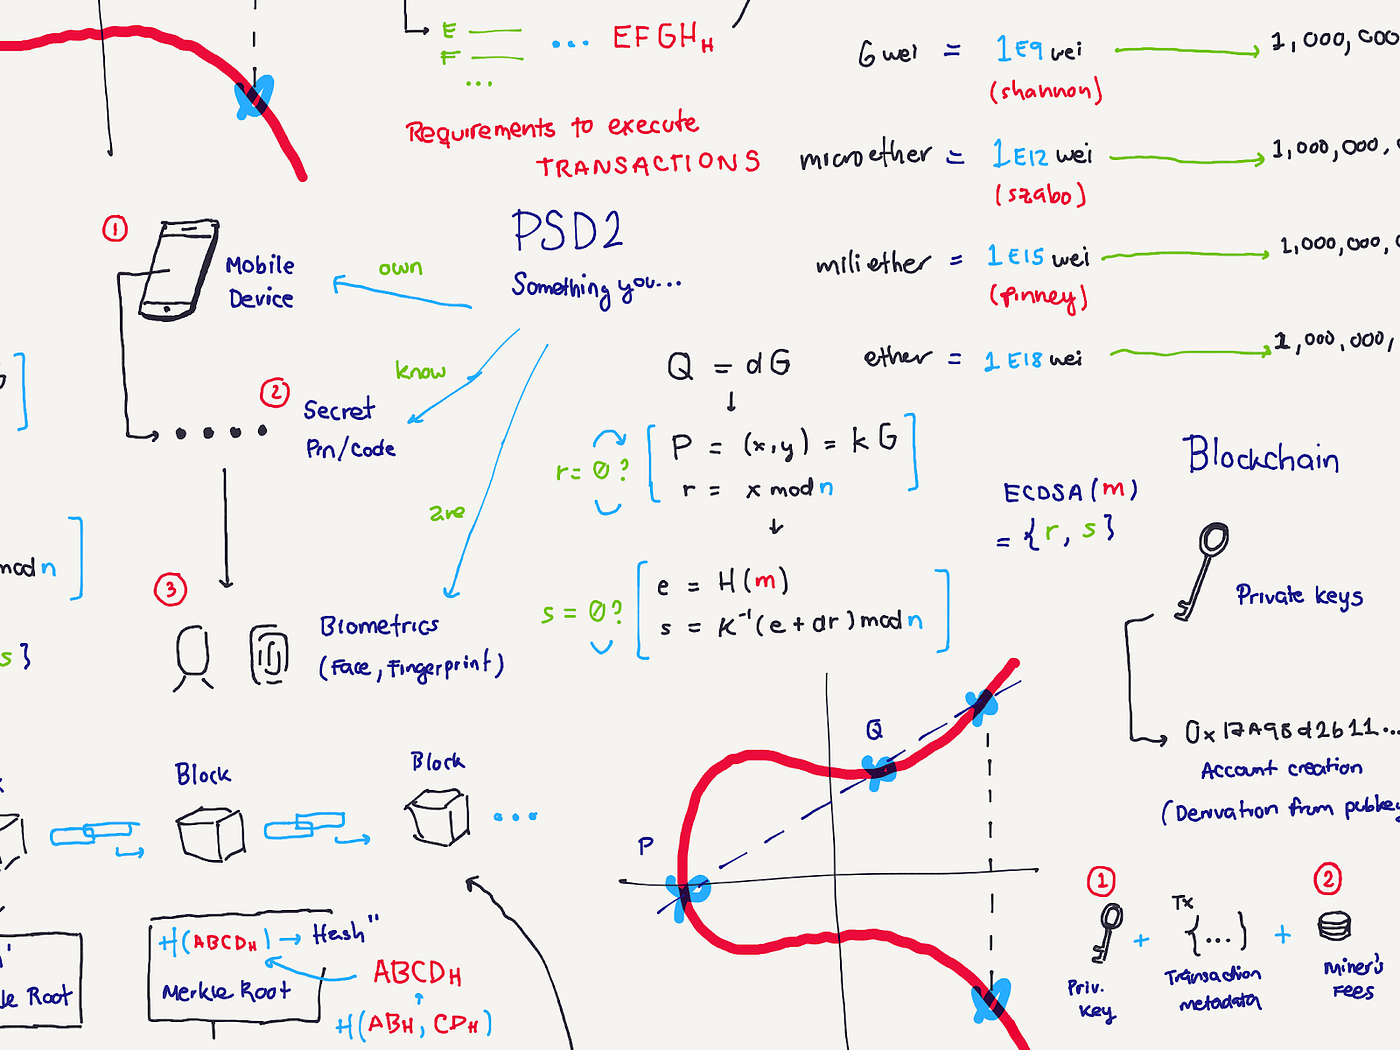 E
F
...
... EFGHH
Requirements to execute
TRANSACTIONS
Gwei = 1E9 wei
(shannon)
1,000,000
microether = 1E12 wei
(szabo)
1,000,000,
miliether = 1E15 wei
(finney)
1,000,000,
ether = 1E18 wei
1,000,000,
PSD2
Something you...
own
know
are
1
Mobile
Device
2
Secret
Pin/Code
3
Biometrics
(Face, Fingerprint)
]
mod n ]
s }
Q = dG
r = 0?
P = (x,y) = kG
r = x mod n
s = 0?
e = H(m)
s = K⁻¹(e + dr) mod n
ECDSA(m)
= {r, s}
Blockchain
Private keys
0x17A98d2b11...
Account creation
(Derivation from pubkey
Block
Block
...
H(ABCDH) → Hash"
Merkle Root
le Root
ABCDH
H(ABH, CDH)
P
Q
1
Priv.
Key
+
Tx
{...}
Transaction
metadata
+
2
Miner's
FEES